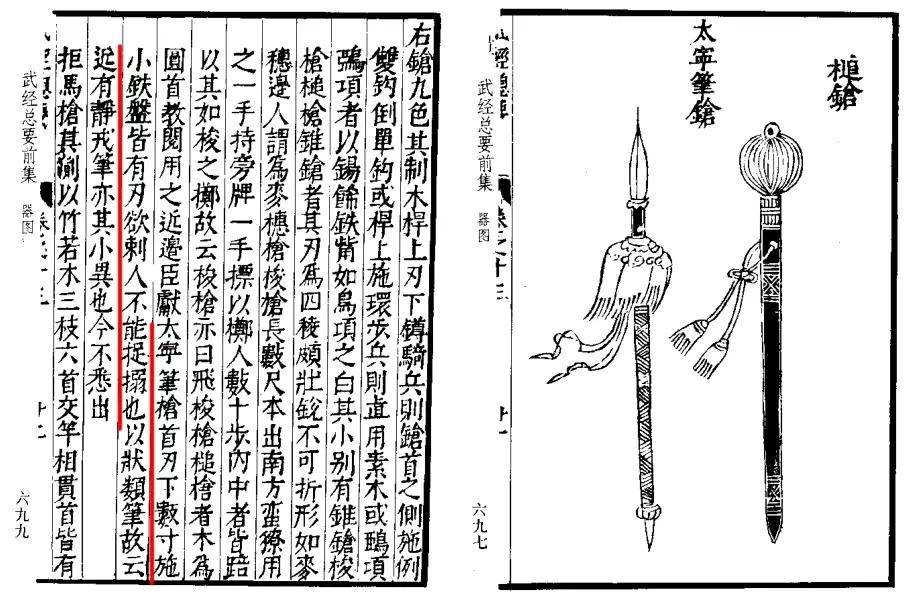 槌鎗
太寧筆鎗
卷之十三
武经总要前集 器图
六九七
右鎗九色其制木桿上刃下鐏騎兵則鎗首之側施倒
雙鈎倒單鈎或桿上施環步兵則直用素木或鵶項
鵶項者以錫餙鉄觜如鳥項之白其小别有錐鎗梭
槍槌槍錐鎗者其刃爲四稜頗壯銳不可折形如麥
穗邊人謂爲麥穗槍梭槍長數尺本出南方蛮獠用
之一手持旁牌一手摽以擲人數十步內中者皆踣
以其如梭之擲故云梭槍亦曰飛梭槍槌槍者木爲
圓首教閱用之近邊臣獻太寧筆槍首刃下數寸施
小鉄盤皆有刃欲刺人不能捉搦也以狀類筆故云
近有靜戎筆亦其小異也今不悉出
拒馬槍其制以竹若木三枝六首交竿相貫首皆有
武经总要前集 器图
六九九